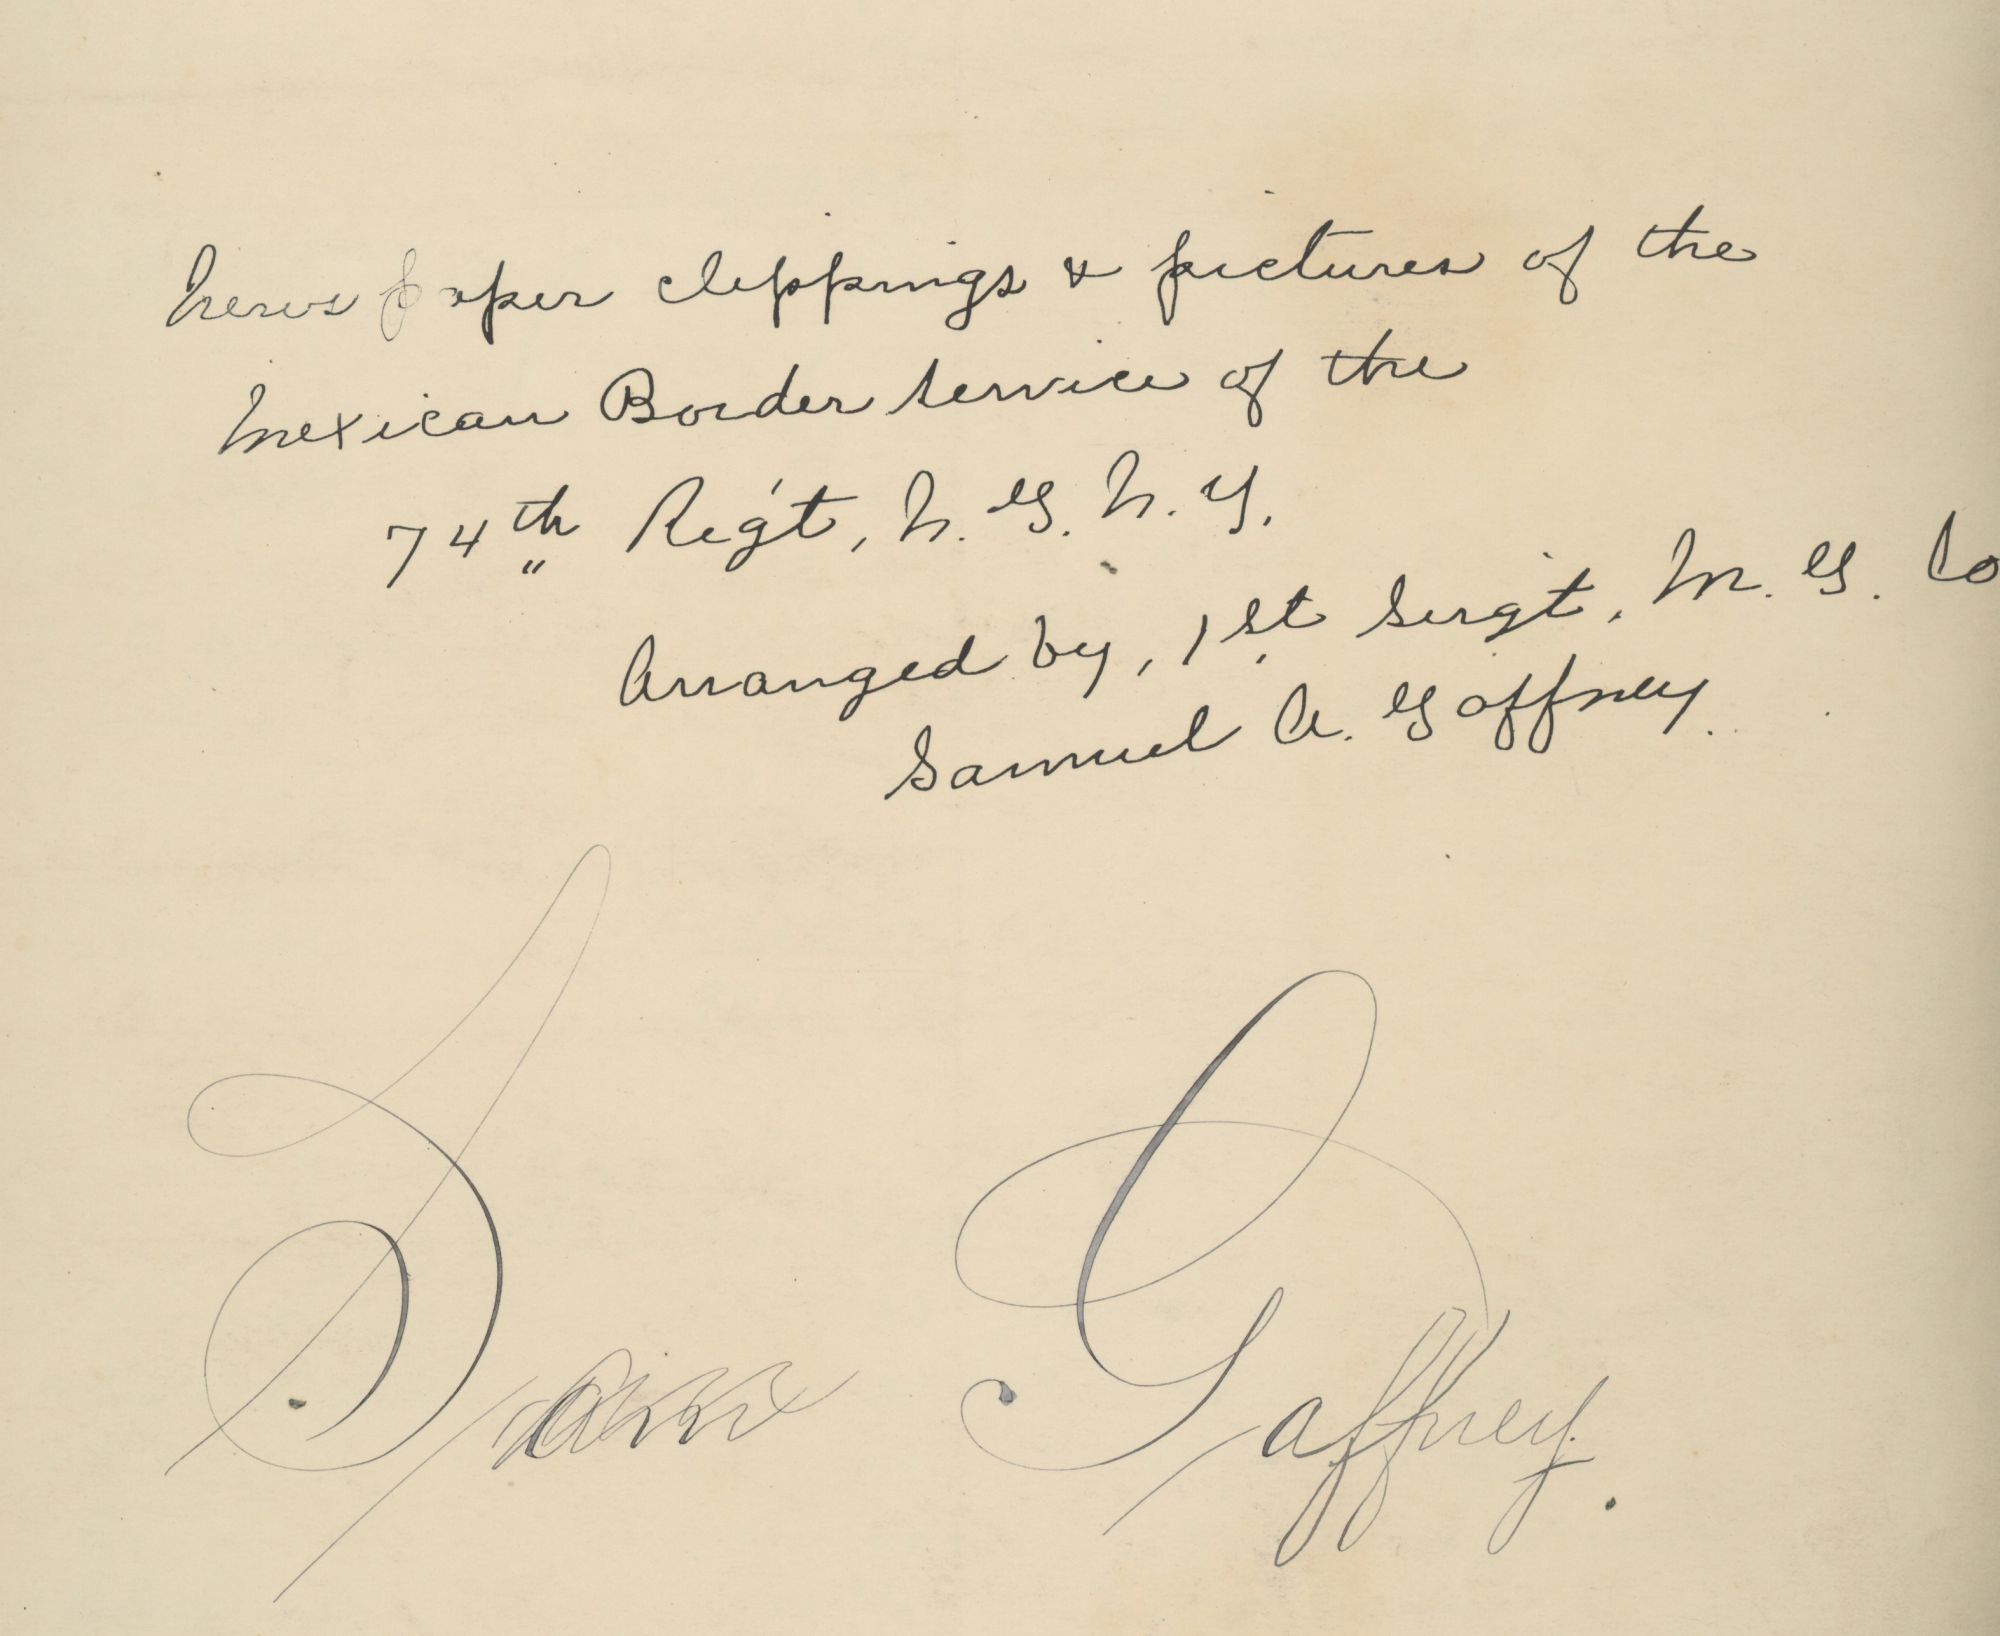 News paper clippings & pictures of the
Mexican Border Service of the
74th Reg't, N. G. N. Y.
Arranged by, 1st Sergt, M. G. Co
Samuel A. Gaffney.
Sam Gaffney.